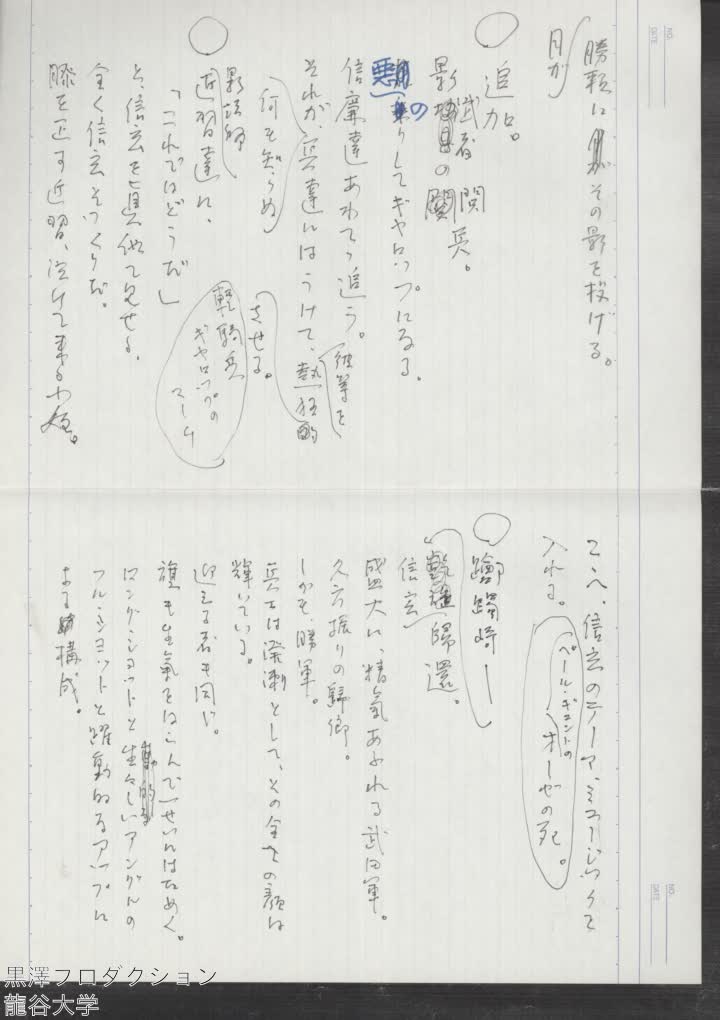 勝頼にその影を投げる。
月が
追加。
影武者の閲兵。
悪のりしてギャロップになる。
信廉達あわてゝ追う。
それが、兵達にはうけて、熱狂的
歓声を
させる。
何も知らぬ
軽騎兵
ギャロップの
マーチ
影法師
近習達に、
「これではどうだ」
と、信玄を真似て見せる、
全く信玄そっくりだ。
膝を正す近習、泣けて来る小姓。
こゝへ、信玄のテーマ、ミュージックを
入れる。
ペール・ギュントの
オーゼの死。
躑躅崎―
信玄
帰還。
盛大に、精気あふれる武田軍。
久方振りの帰郷。
しかも、勝軍。
兵士は溌溂として、その全ての顔は
輝いている。
迎える者も同じ。
旗も生気をはらんで一せいにはためく。
ロングショットと生々しいアングルの
動的な
フルショットと躍動するアップに
よる構成。
NO.
DATE
NO.
DATE
黒澤プロダクション
龍谷大学